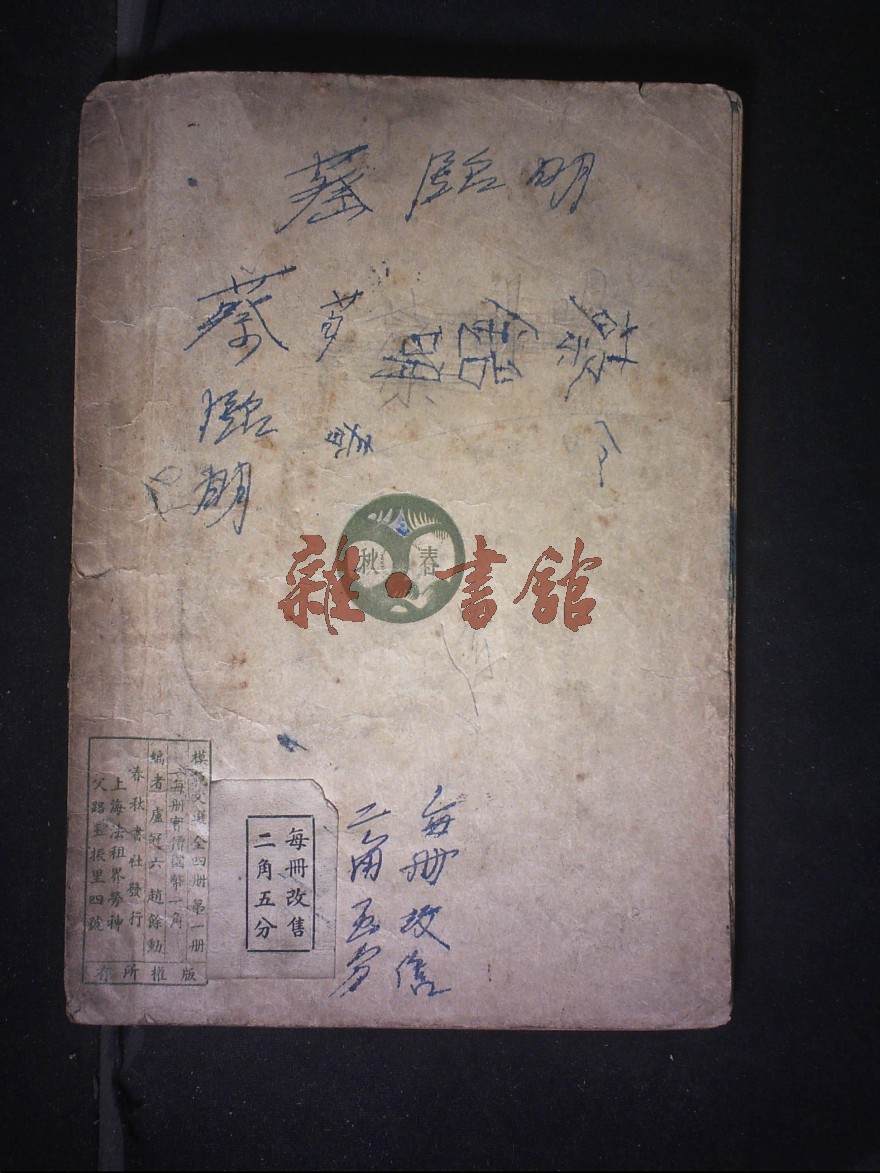 蔡臨明
蔡臨明
春秋
雜·書館
每冊改售
二角五分
每冊改售
二角五分
模範文選全四册第一册
每册實價國幣一角
編者 盧冠六 趙餘勳
春秋書社發行
上海法租界勞神
父路 里四號
版權所有